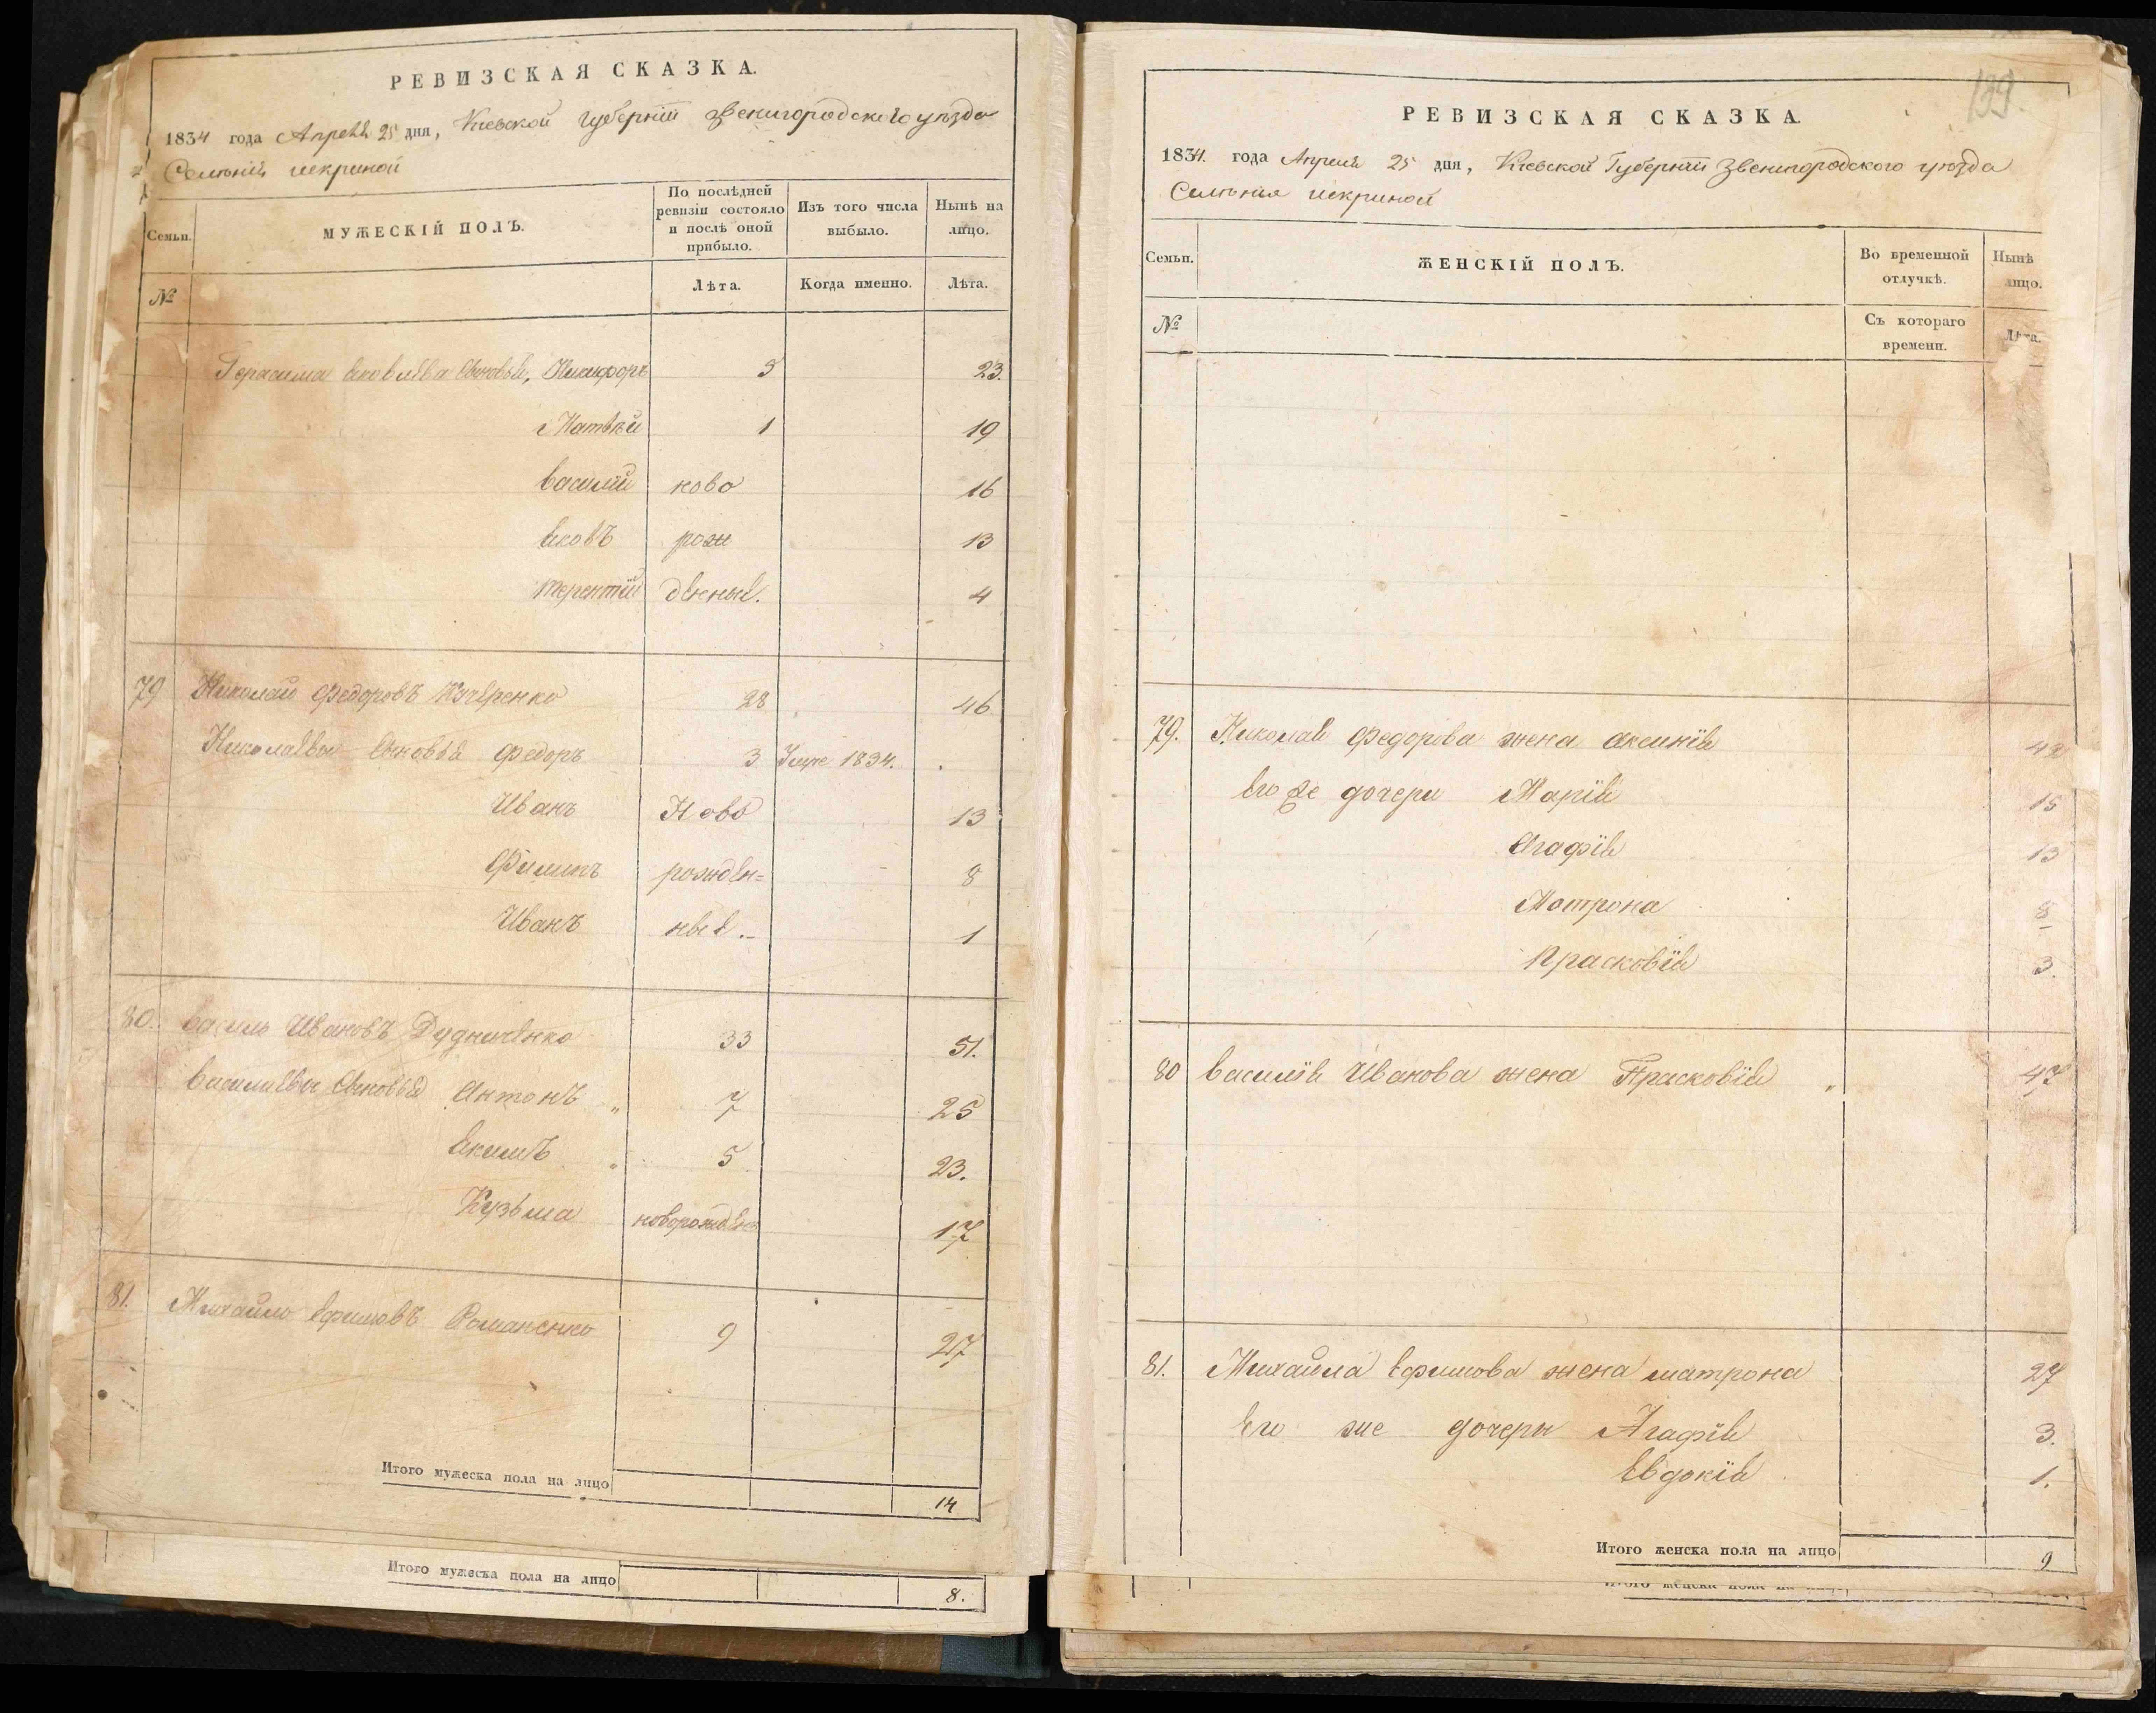 РЕВИЗСКАЯ СКАЗКА.
1834 года Апреля 25 дня, Киевской Губерніи Звенигородского уѣзда
Селѣнія Искриной
Семьи.
МУЖЕСКІЙ ПОЛЪ.
По послѣдней ревизіи состояло и послѣ оной прибыло.
Изъ того числа выбыло.
Нынѣ на лицо.
№
Лѣта.
Когда именно.
Лѣта.
Герасима Яковлева сыновья, Никифоръ 5 23.
Матвѣй 1 19
Василій ново 16
Яковъ рож 13
Терентій денные. 4
79 Николай Федоровъ Кучеренко 28 46
Николаевы сыновья Федоръ 3 Умре 1834.
Иванъ Ново 13
Филипъ рожден= 8
Иванъ ные .- 1
80. Василь Ивановъ Дудниченко 33 51.
Василиевы сыновья Антонъ „ 7 25
Якимъ „ 5 23.
Кузьма новорожден 17
81. Михайло Ефимовъ Романенко 9 27
Итого мужеска пола на лицо 14
Итого мужеска пола на лицо 8.
139.
РЕВИЗСКАЯ СКАЗКА.
1834. года Апреля 25 дня, Киевской Губерніи Звенигородского уѣзда
Селѣнія Искриной
Семьи.
ЖЕНСКІЙ ПОЛЪ.
Во временной отлучкѣ.
Нынѣ лицо.
№
Съ котораго времени.
Лѣта.
79. Николая Федорова жена Аксинія 42
Его же дочери Марія 15
Агафія 13
Мотрона 8
Прасковія 3.
80 Василія Иванова жена Прасковія „ 47
81. Михайла Ефимова жена Матрона 27
Его же дочеры Агафія 3.
Евдокія 1.
Итого женска пола на лицо 9